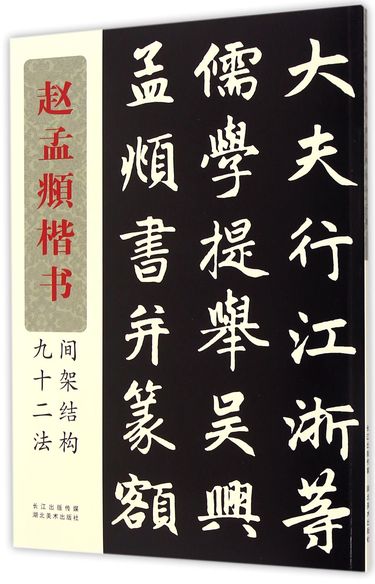 大夫行江浙等
儒學提舉吴興
孟頫書并篆額
赵孟頫楷书
间架结构
九十二法
长江出版传媒
湖北美术出版社